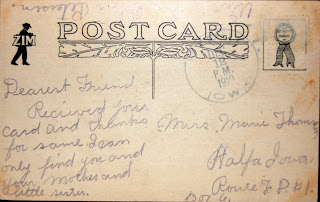 POST CARD
ZIM
P.M.
IOWA
Dearest Friend
Recieved your
card and thanks
for same I can
only find you and
your Mother and
little sister.
Mrs. Marie Thoms
Halfa Iowa
Route #1.
Box 6.